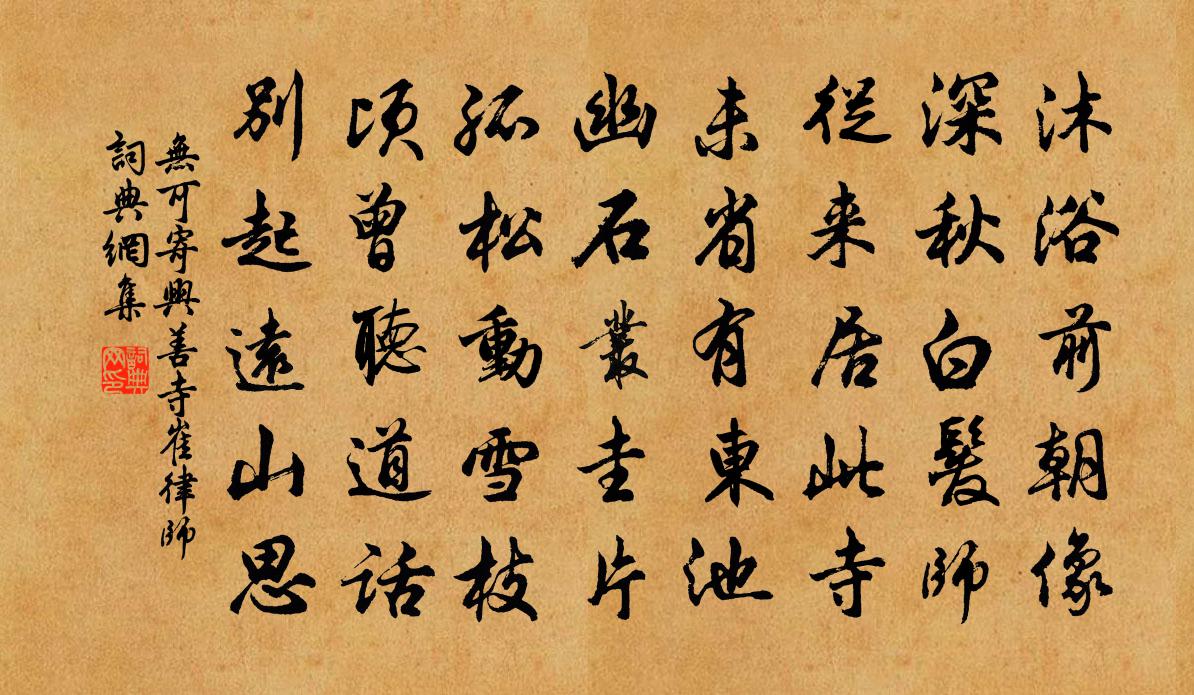 沐浴前朝像
深秋白髮師
從来居此寺
未省有東池
幽石叢圭片
孤松動雪枝
頃曾聽道話
別起遠山思
無可寄興善寺崔律師
詞典網集
詞典网印